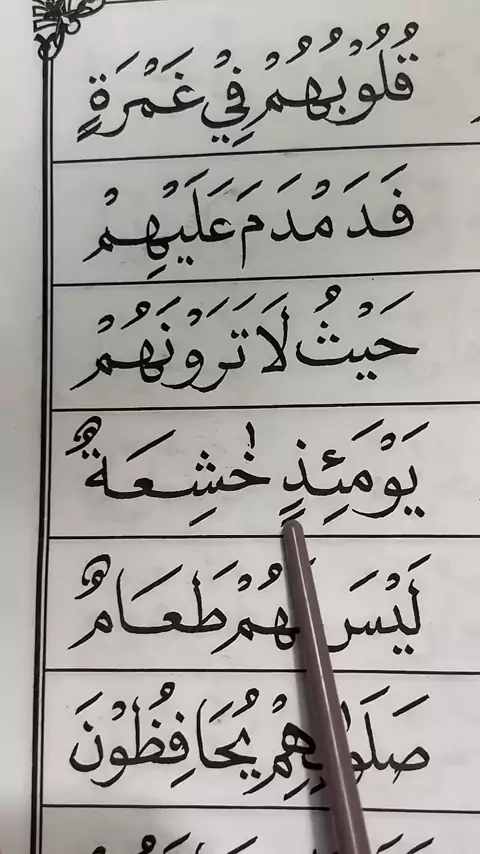 قُلُوْبُهُمْ فِيْ غَمْرَةٍ
فَدَ مْدَ مَ عَلَيْهِمْ
حَيْثُ لَا تَرَوْنَهُمْ
يَوْمَئِذٍ خٰشِعَةٌ
لَيْسَ لَهُمْ طَعَامٌ
صَلَاتِهِمْ يُحَافِظُوْنَ